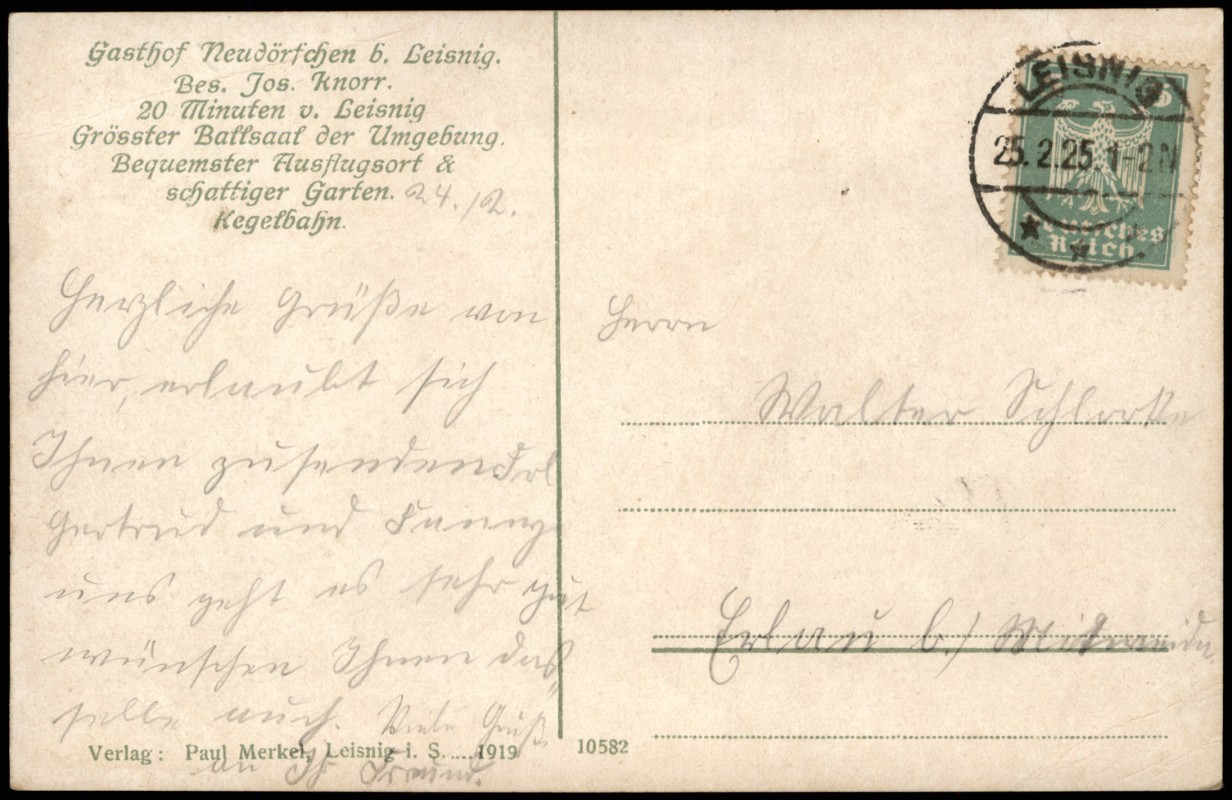 Gasthof Neudörfchen b. Leisnig.
Bes. Jos. Knorr.
20 Minuten v. Leisnig
Grösster Ballsaal der Umgebung.
Bequemster Ausflugsort &
schattiger Garten.
Kegelbahn.
24./2.
Herzliche Grüße von
hier, erlaubt sich
Ihnen zusenden Frl
Gertrud und Fanny
uns geht es sehr gut
wünschen Ihnen das„
selbe auch. Viele Grüß.
an Ih. Freund.
Verlag: Paul Merkel, Leisnig i. S. .... 1919
10582
LEISNIG
25.2.25.1-2N
5
Deutsches
Reich
Herrn
Walter
Erlau b./ Mittweida